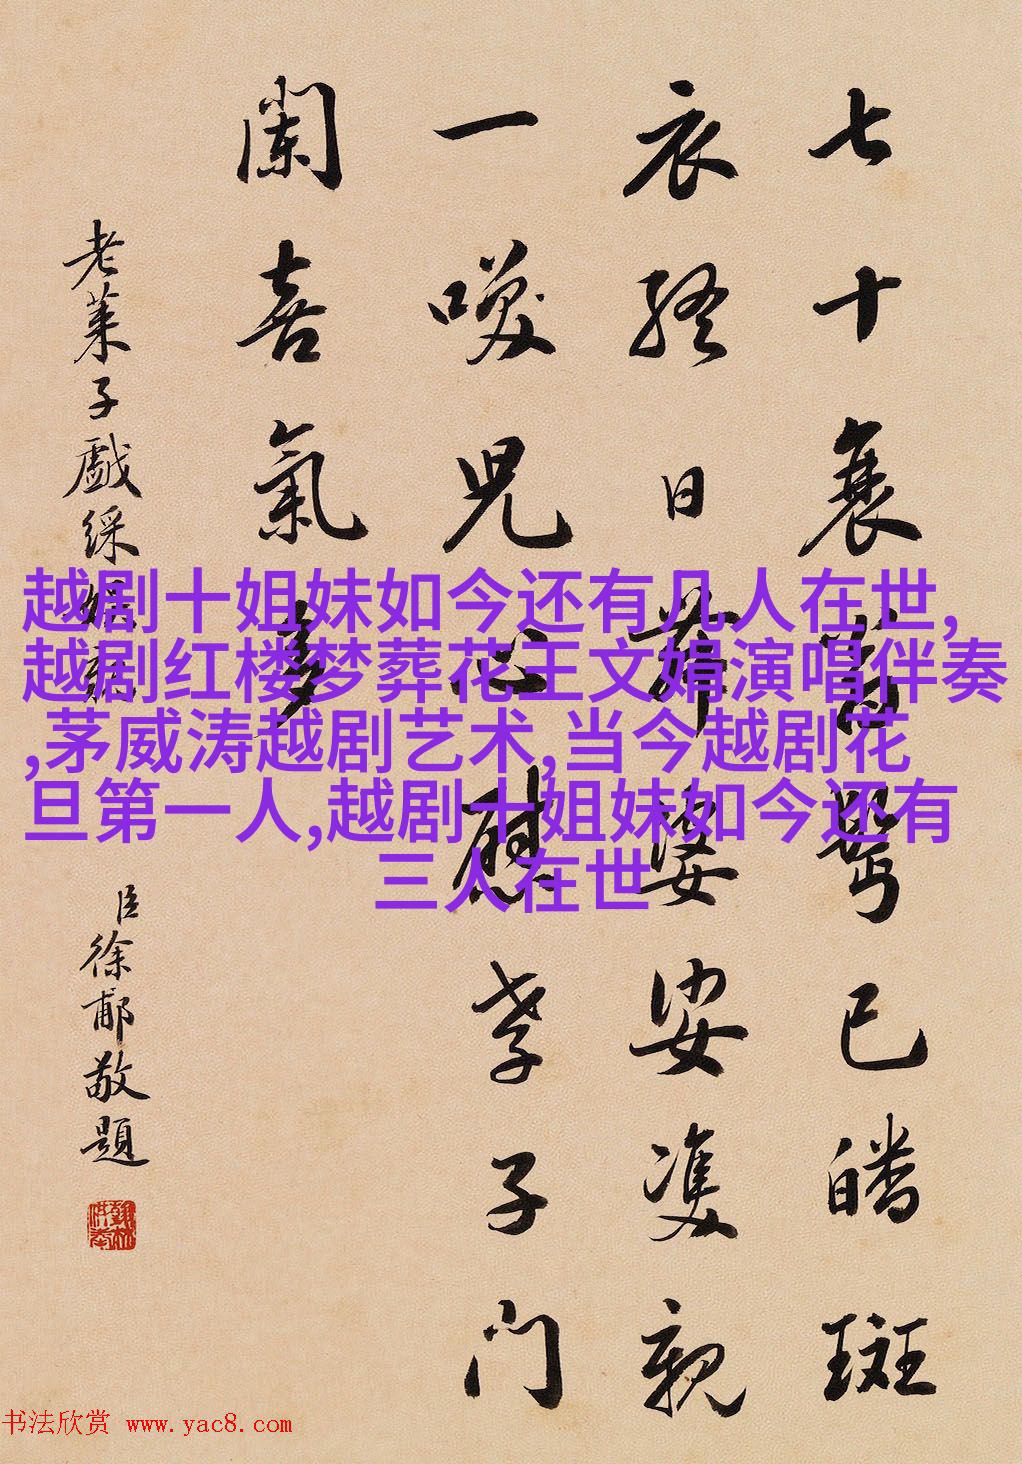 七十衰耆鬢已皤斑
衣終日舞婆娑雙親
一咲兒心慰孝子門
闌喜氣多
老萊子戲綵娛親
臣徐郙敬題
越剧十姐妹如今还有几人在世,
越剧红楼梦葬花王文娟演唱伴奏
,茅威涛越剧艺术,当今越剧花
旦第一人,越剧十姐妹如今还有
三人在世
书法欣赏 www.yac8.com